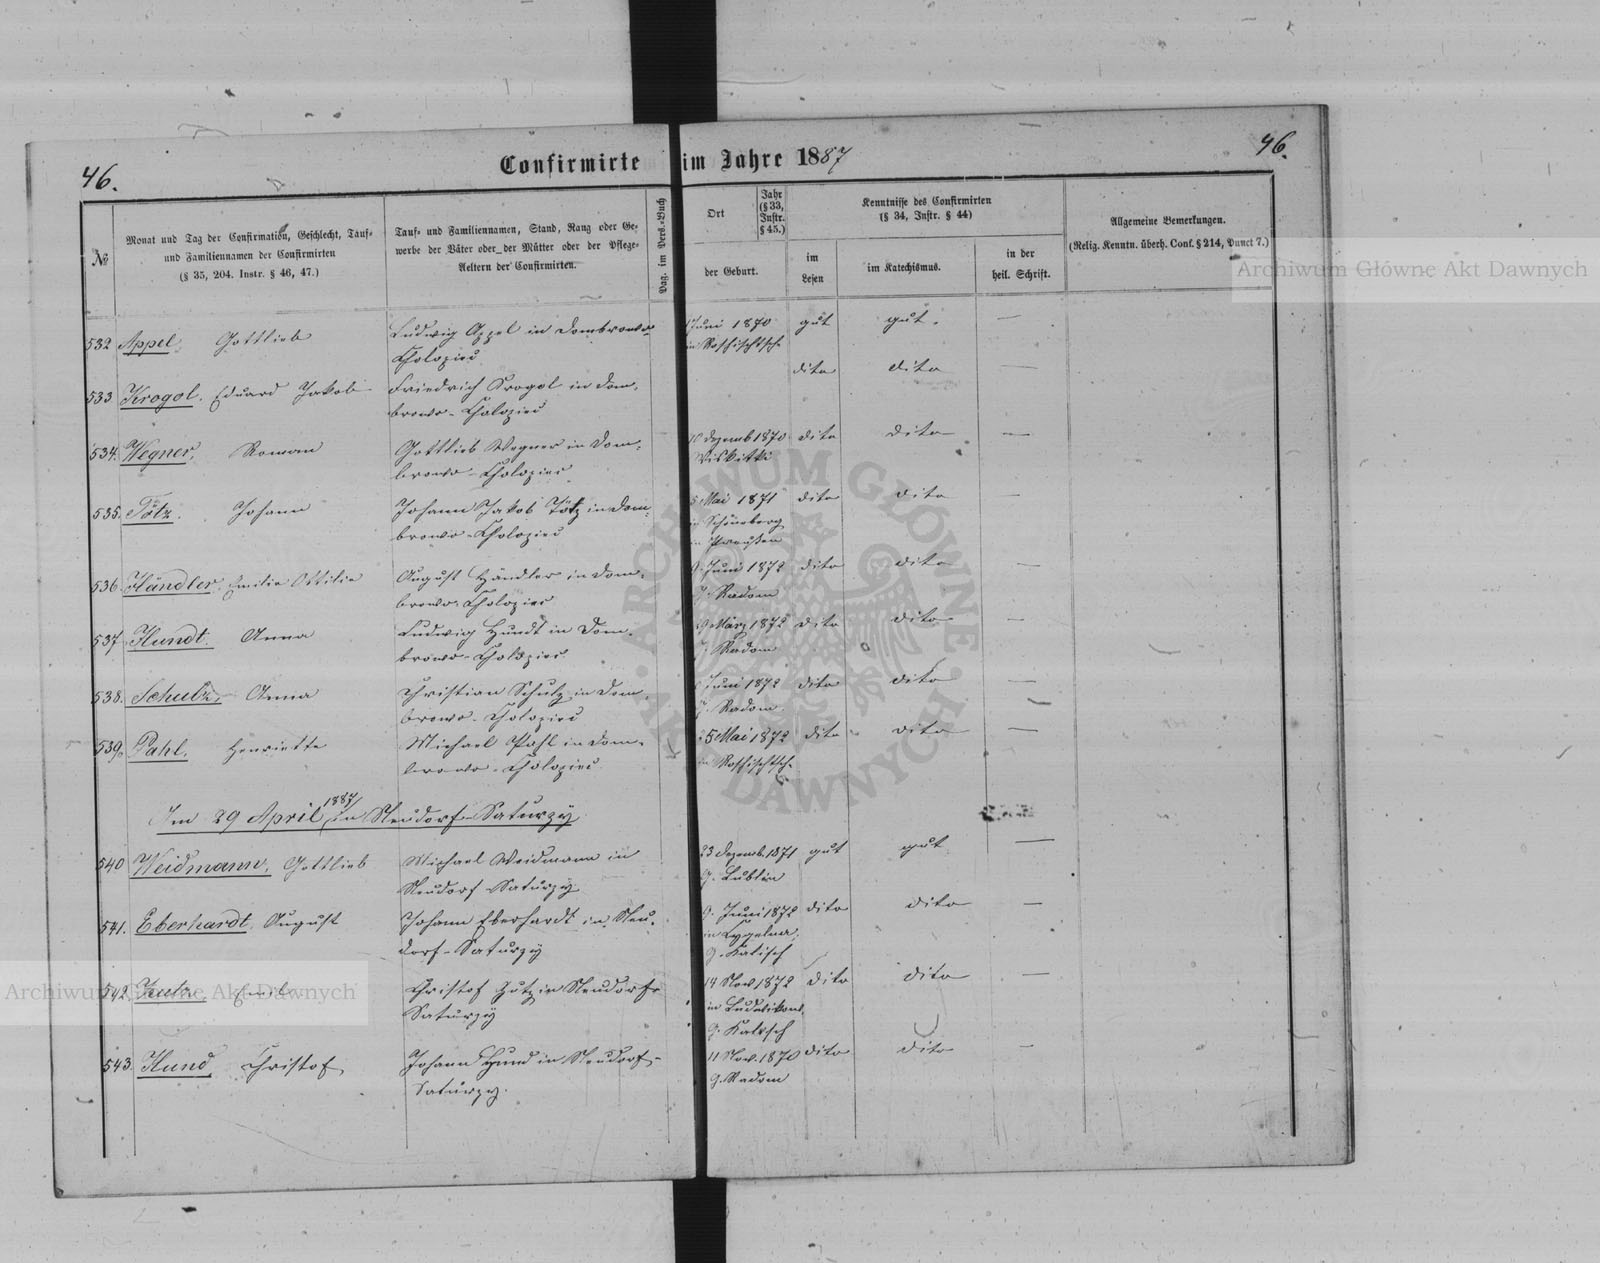 46.
Confirmirte im Jahre 1887
46.
№
Monat und Tag der Confirmation, Geschlecht, Tauf-
und Familiennamen der Confirmirten
(§ 35, 204. Instr. § 46, 47.)
Tauf- und Familiennamen, Stand, Rang oder Ge-
werbe der Väter oder der Mütter oder der Pflege-
Aeltern der Confirmirten.
Pag. im Pers.-Buch
Ort
Jahr
(§ 33,
Instr.
§ 45.)
der Geburt.
Kenntnisse des Confirmirten
(§ 34, Instr. § 44)
im
Lesen
im Katechismus.
in der
heil. Schrift.
Allgemeine Bemerkungen.
(Relig. Kenntn. überh. Conf. § 214, Punct 7.)
532 Appel Gottlieb
Ludwig Appel in Dombrowo-
Cholopiec
Juni 1870
gut gut. —
533 Krogol. Eduard Jakob
Friedrich Krogol in Dom-
browo-Cholopiec
dito dito —
534. Wegner, Roman
Gottlieb Wegner in Dom-
browo-Cholopiec
10 Dezemb 1870
Wiskitki
dito dito —
535. Tötz. Johann
Johann Jakob Tötz in Dom-
browo-Cholopiec
5 Mai 1871
in Schöneberg
in Preußen
dito dito —
536. Händler. Emilie Ottilie
August Händler in Dom-
browo-Cholopiec
9. Juni 1872
G. Radom
dito dito —
537. Hundt. Anna
Ludwig Hundt in Dom-
browo-Cholopiec
9 März 1872
G. Radom
dito dito —
538. Schulz, Anna
Christian Schulz in Dom-
browo-Cholopiec
Juni 1872
G. Radom
dito dito —
539. Pahl, Henriette
Michael Pahl in Dom-
browo-Cholopiec
25 Mai 1872
dito dito —
Im 29 April 1887 in Neudorf-Saturzy
540 Weidmann, Gottlieb
Michael Weidmann in
Neudorf-Saturzy
23 Dezemb. 1871
G. Lublin
gut gut —
541. Eberhardt, August
Johann Eberhardt in Neu-
dorf-Saturzy
9. Juni 1872
G. Kalisch
dito dito —
542 Emil
Christof Gutz in Neudorf-
Saturzy
14 Nov 1872
G. Kalisch
dito dito —
543. Hund, Christof
Johann Hund in Neudorf-
Saturzy.
11 Nov. 1870
G. Radom
dito dito —
Archiwum Główne Akt Dawnych
Archiwum Główne Akt Dawnych
ARCHIWUM GŁÓWNE AKT DAWNYCH